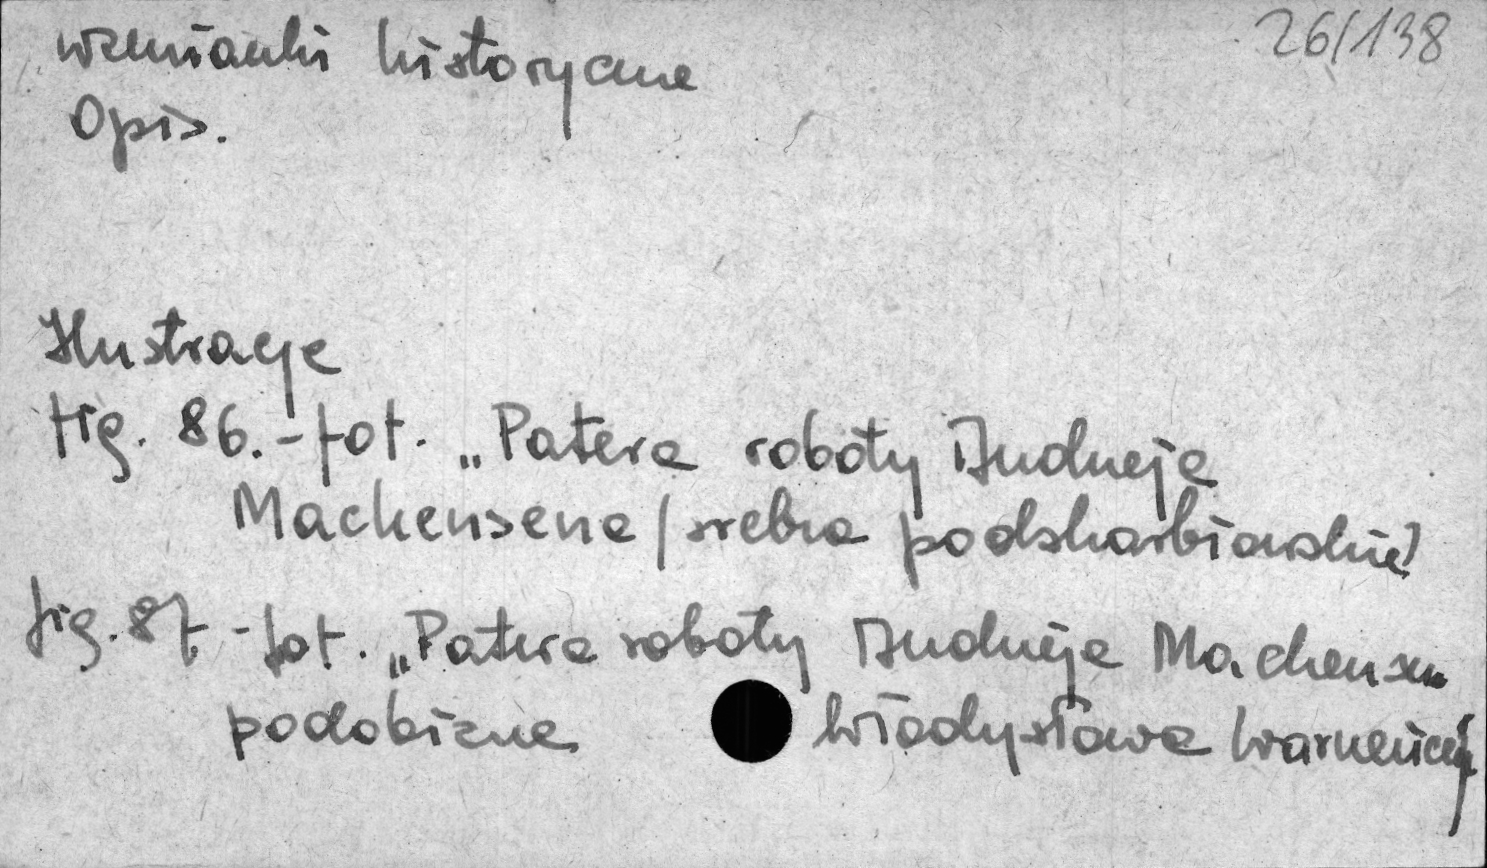 26/138
wzmianki historyczne
Opis.
Ilustracje
fig. 86. - fot. „Patera roboty Andrzeja
Machensena / srebra podskarbiowskie/
fig. 87. - fot. „Patera roboty Andrzeja Machensena
podobizna Władysława Warneńczyka